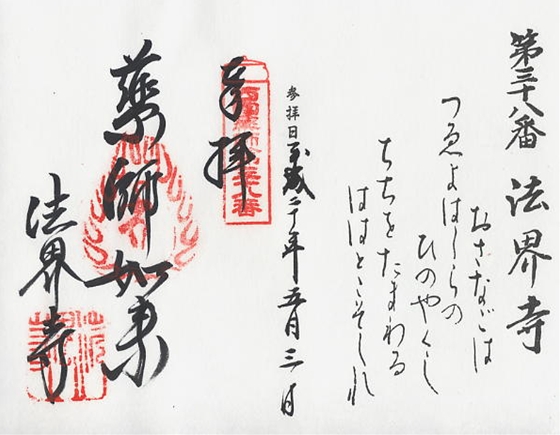 第三十八番 法界寺
おさなごは
つゑよはしらの
ひのやくし
ちちをたまわる
ははとこそしれ
参拝日 平成二十年五月三日
奉拝
藥師如来
法界寺